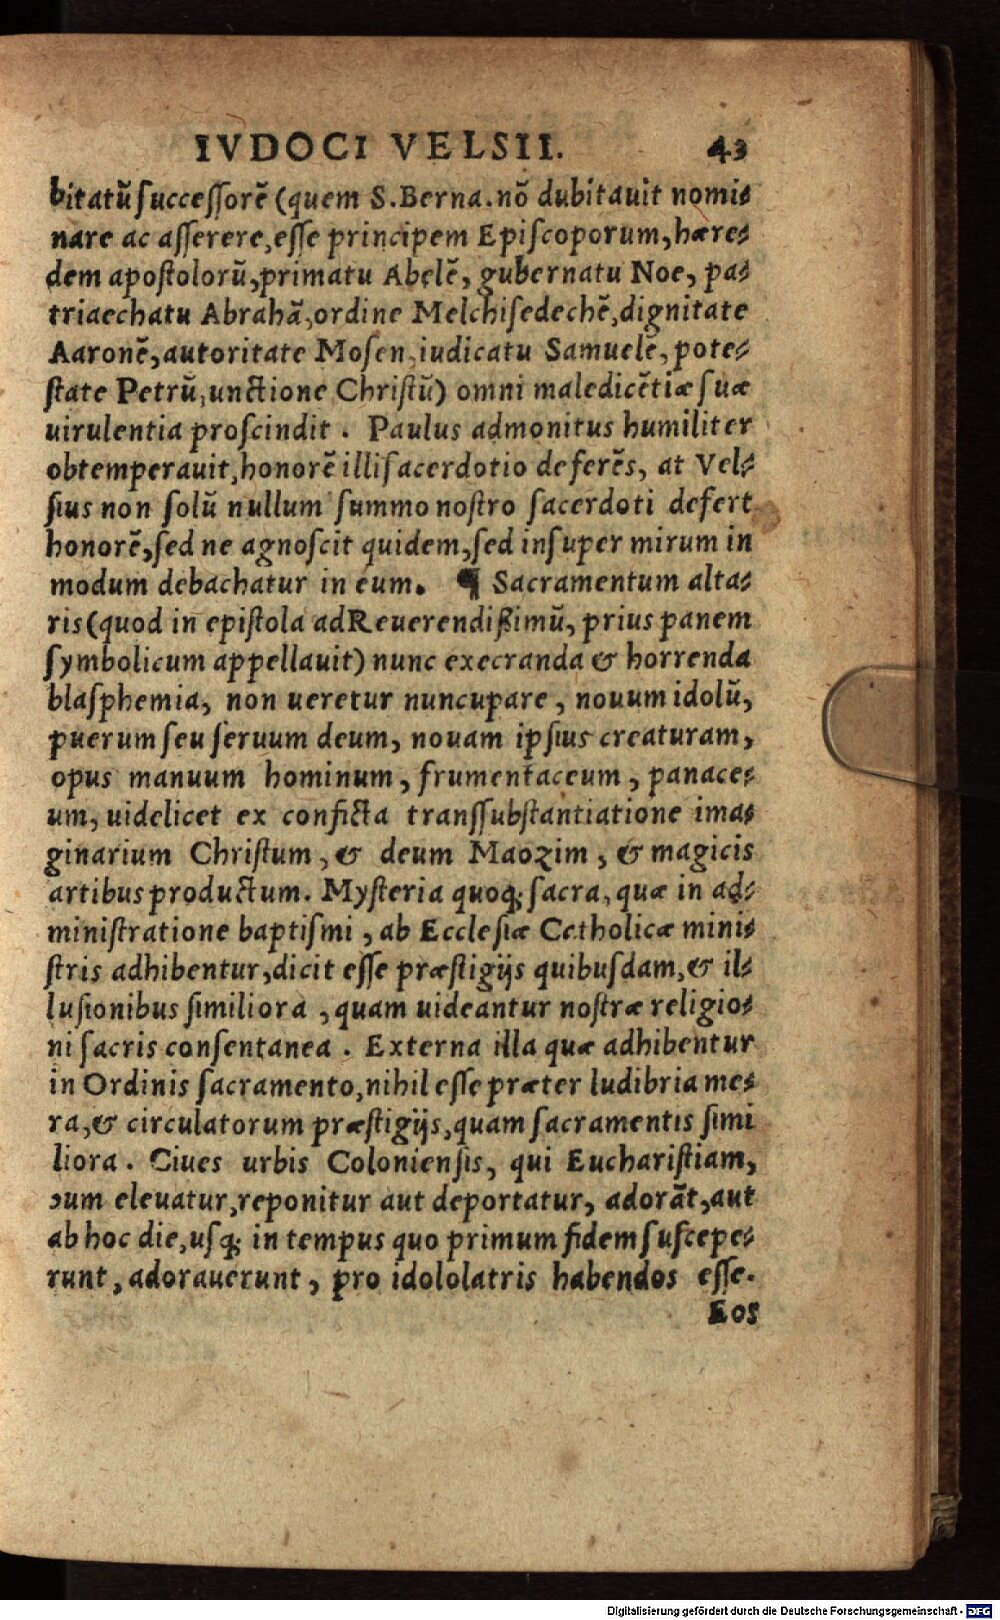 IVDOCI VELSII. 43
bitatũ successorẽ (quem S. Berna. nõ dubitauit nomi-
nare ac asserere, esse principem Episcoporum, hære-
dem apostolorũ, primatu Abelẽ, gubernatu Noe, pa-
triaechatu Abrahã, ordine Melchisedechẽ, dignitate
Aaronẽ, autoritate Mosen, iudicatu Samuelẽ, pote-
state Petrũ, unctione Christũ) omni maledicẽtiæ suæ
uirulentia proscindit. Paulus admonitus humiliter
obtemperauit, honorẽ illi sacerdotio deferẽs, at Vel-
sius non solũ nullum summo nostro sacerdoti defert
honorẽ, sed ne agnoscit quidem, sed insuper mirum in
modum debachatur in eum. ¶ Sacramentum alta-
ris (quod in epistola ad Reuerendißimũ, prius panem
symbolicum appellauit) nunc execranda & horrenda
blasphemia, non ueretur nuncupare, nouum idolũ,
puerum seu seruum deum, nouam ipsius creaturam,
opus manuum hominum, frumentaceum, panace-
um, uidelicet ex conficta transsubstantiatione ima-
ginarium Christum, & deum Maozim, & magicis
artibus productum. Mysteria quoq; sacra, quæ in ad-
ministratione baptismi, ab Ecclesiæ Catholicæ mini-
stris adhibentur, dicit esse præstigijs quibusdam, & il-
lusionibus similiora, quam uideantur nostræ religio-
ni sacris consentanea. Externa illa quæ adhibentur
in Ordinis sacramento, nihil esse præter ludibria me-
ra, & circulatorum præstigijs, quam sacramentis simi
liora. Ciues urbis Coloniensis, qui Eucharistiam,
cum eleuatur, reponitur aut deportatur, adorãt, aut
ab hoc die, usq; in tempus quo primum fidem suscepe-
runt, adorauerunt, pro idololatris habendos esse.
Eos
Digitalisierung gefördert durch die Deutsche Forschungsgemeinschaft - DFG